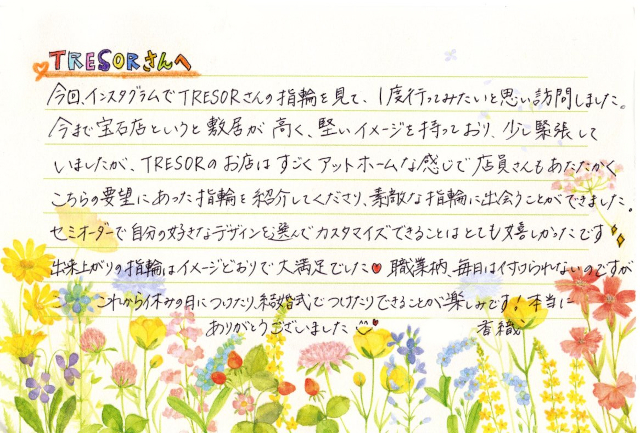 TRESORさんへ
今回、インスタグラムでTRESORさんの指輪を見て、1度行ってみたいと思い訪問しました。
今まで宝石店というと敷居が高く、堅いイメージを持っており、少し緊張して
いましたが、TRESORのお店はすごくアットホームな感じで店員さんもあたたかく
こちらの要望にあった指輪を紹介してくださり、素敵な指輪に出会うことができました。
セミオーダーで自分の好きなデザインを選んでカスタマイズできることはとても嬉しかったです
出来上がりの指輪はイメージどおりで大満足でした♥ 職業柄、毎日は付けられないのですが
これから休みの日につけたり、結婚式でつけたりできることが楽しみです！本当に
ありがとうございました
香織